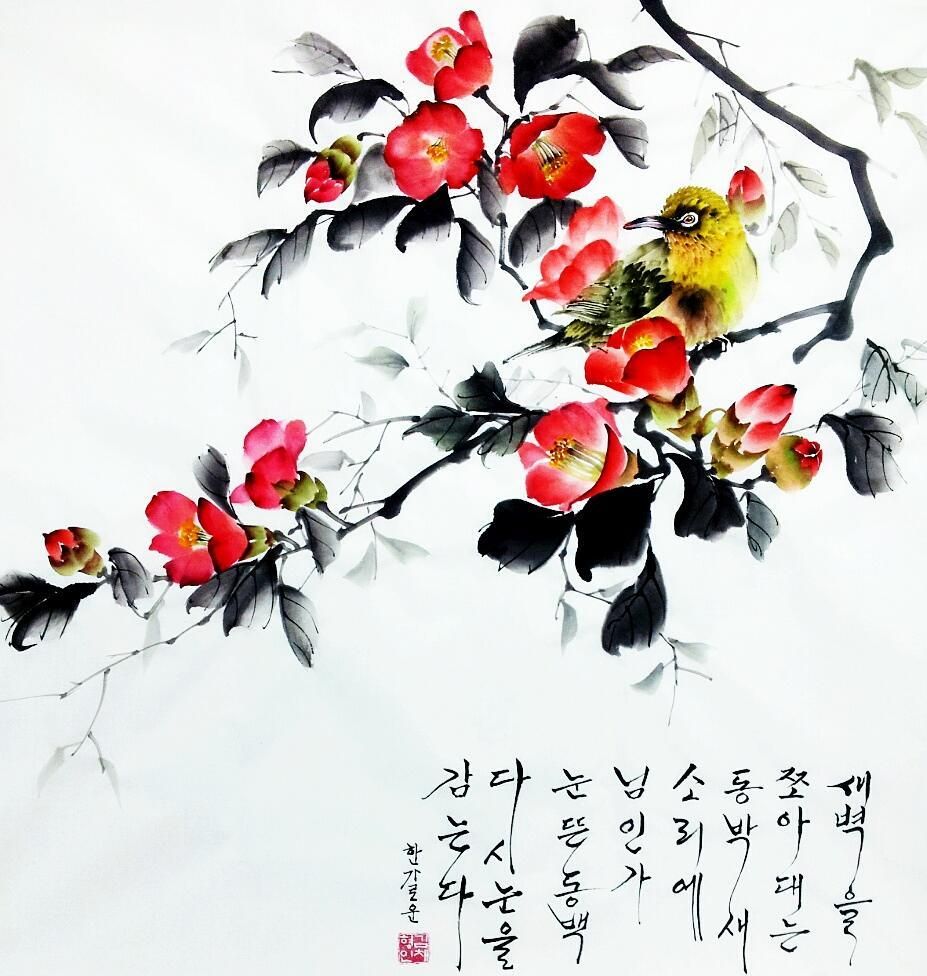 새벽을
쪼아대는
동박새
소리에
님인가
눈뜬동백
다시눈을
감는다